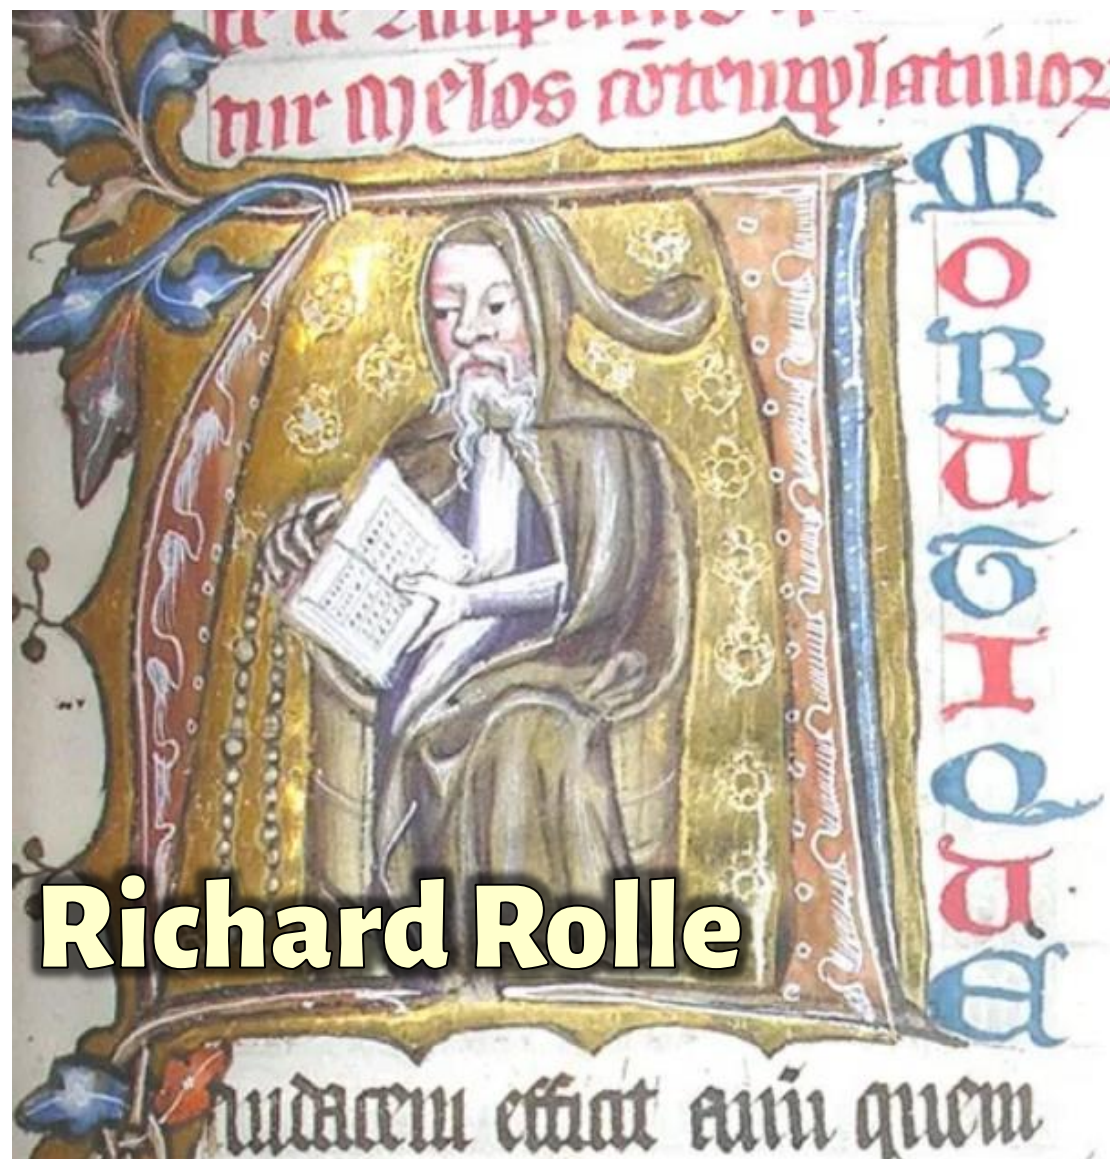 tur Melos cōtemplatiuoꝝ
MORUTIQUE
Richard Rolle
audacem efficit quem